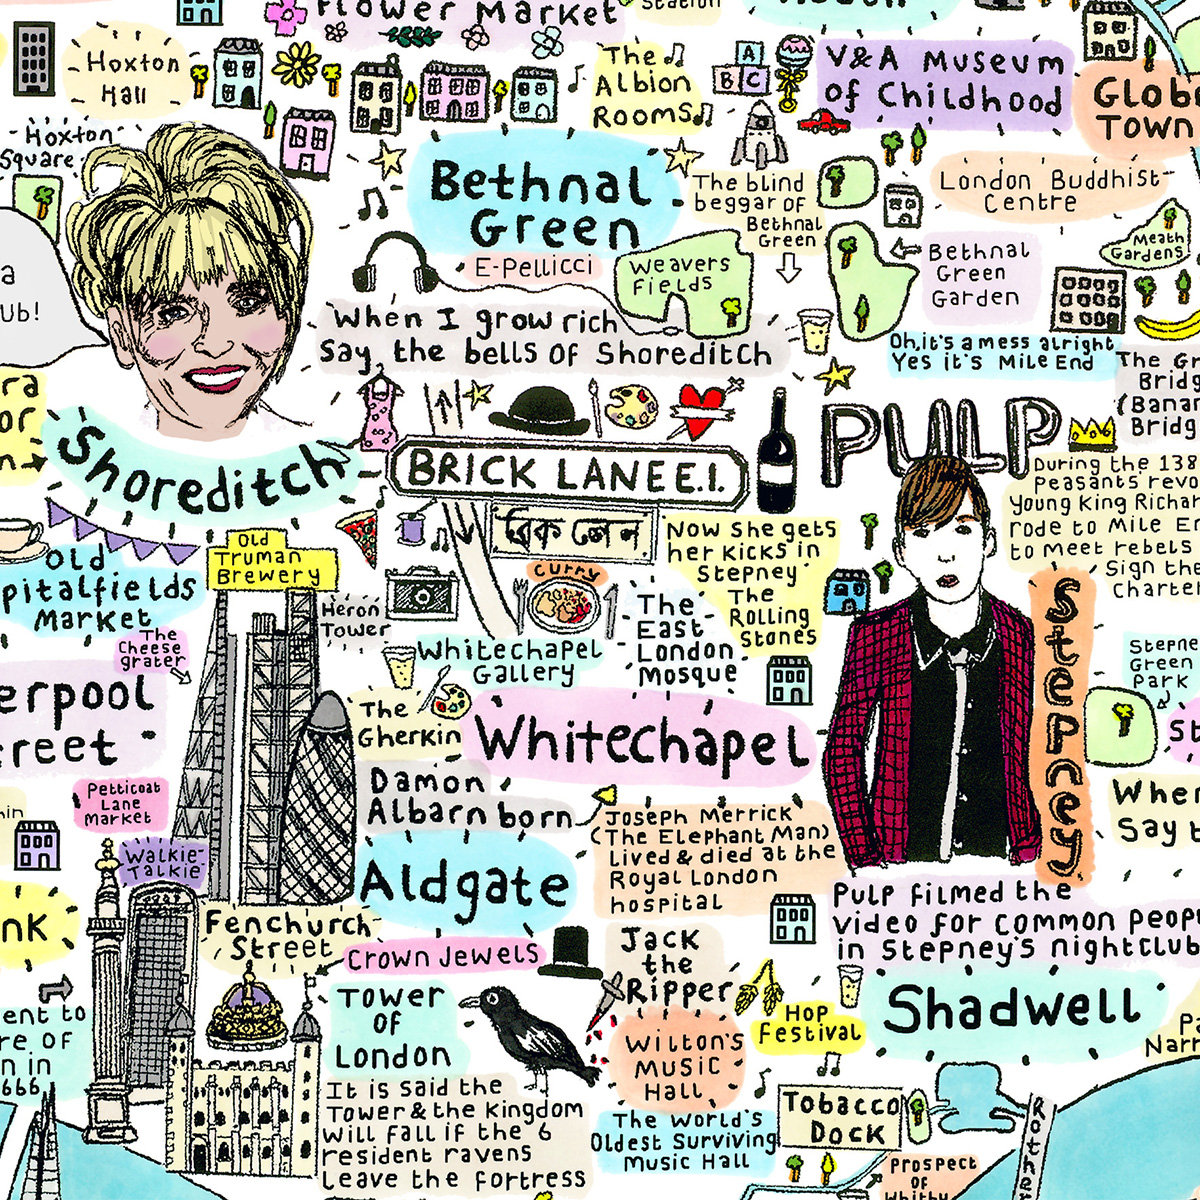 Flower Market
Station
Hoxton
Hall
The
Albion
Rooms
A
B C
V&A Museum
of Childhood
Globe
Town
Hoxton
Square
Bethnal
Green
E-Pellicci
The blind
beggar of
Bethnal
Green
London Buddhist
Centre
Meath
Gardens
Bethnal
Green
Garden
Weavers
Fields
a
ub!
When I grow rich
say, the bells of Shoreditch
Oh, it's a mess alright
Yes it's Mile End
The Gr
Bridg
(Banan
Bridg
ra
or
n
Shoreditch
BRICK LANE E.1.
ব্রিক লেন
PULP
During the 138
Peasants revo
young King Richar
rode to Mile En
to meet rebels
Sign the
Charter
Old
Truman
Brewery
Old
pitalfields
Market
Now she gets
her kicks in
Stepney
The
Rolling
Stones
curry
Heron
Tower
The
East
London
Mosque
The
Cheese
grater
Whitechapel
Gallery
Stepney
Stepne
Green
Park
erpool
treet
The
Gherkin
Whitechapel
St
Damon
Albarn born
Petticoat
Lane
Market
Joseph Merrick
(The Elephant Man)
Lived & died at the
Royal London
hospital
When
Say t
Walkie-
Talkie
Aldgate
Pulp filmed the
video for common peop
in Stepney's nightclub
nk
Fenchurch
Street
Crown Jewels
Jack
the
Ripper
Tower
of
London
Hop
Festival
Shadwell
ent to
re of
n in
666
Wilton's
Music
Hall
P
Narr
It is said the
Tower & the Kingdom
will fall if the 6
resident ravens
leave the fortress
The World's
Oldest Surviving
Music Hall
Tobacco
Dock
Rother
Prospect
of
Whitby